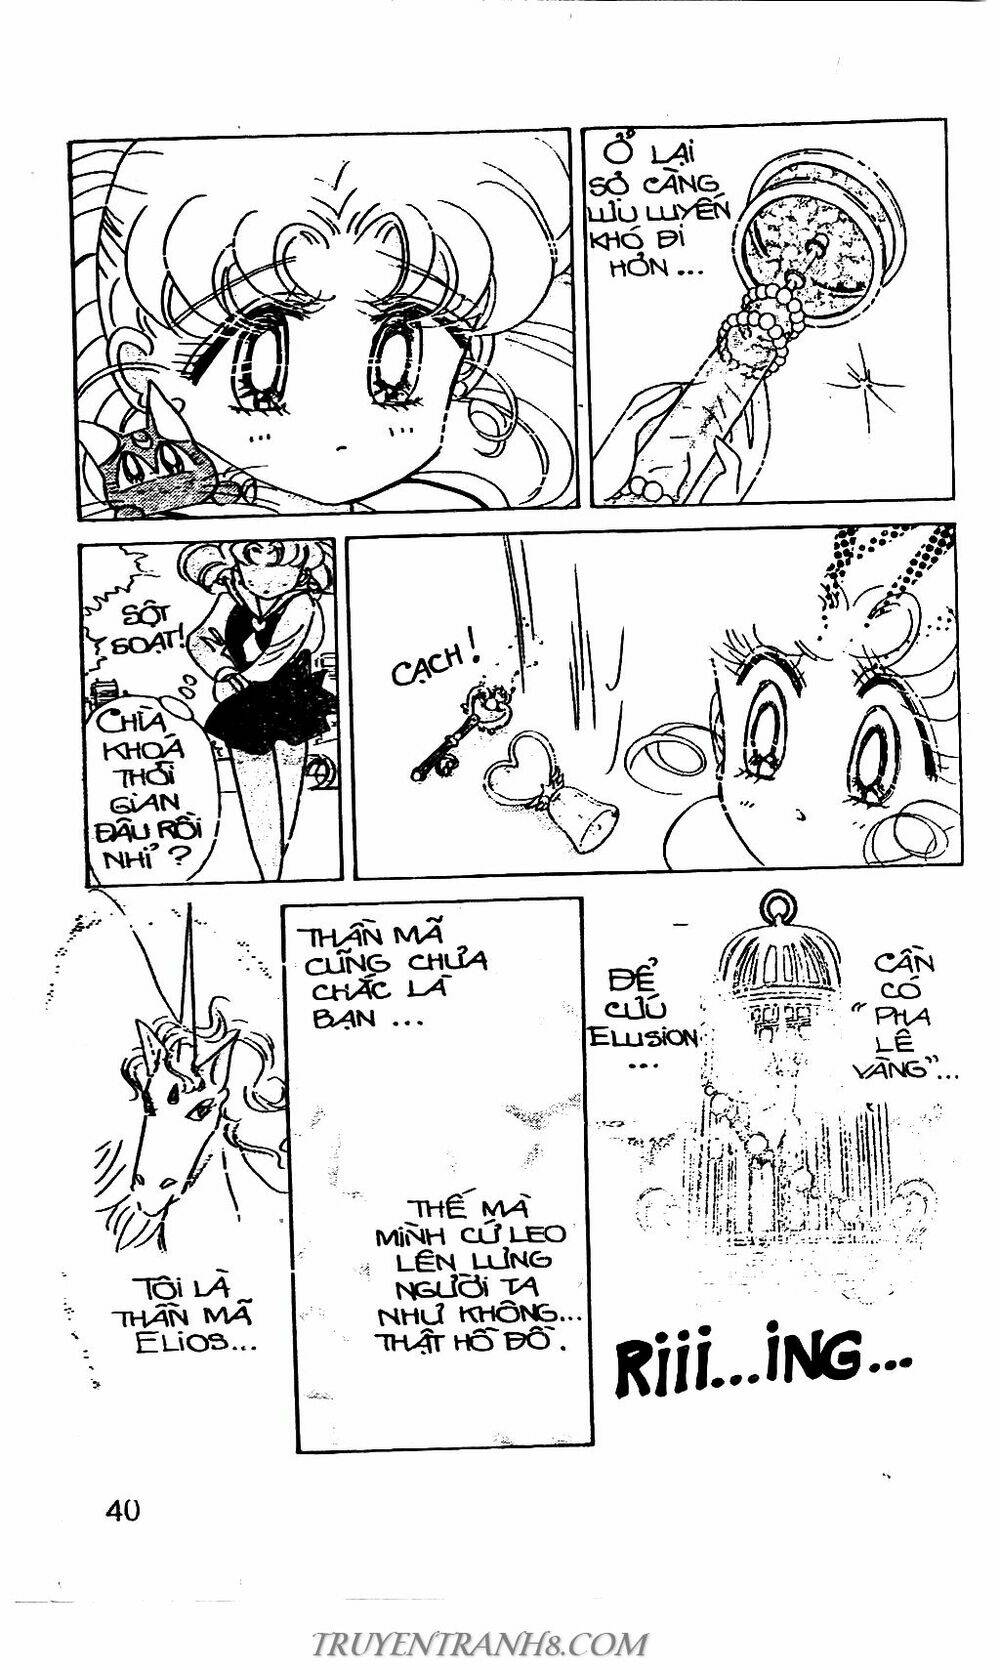 Ở LẠI
SỢ CÀNG
LƯU LUYẾN
KHÓ ĐI
HƠN...
SỘT
SOẠT!
CHÌA
KHOÁ
THỜI
GIAN
ĐÂU RỒI
NHỈ?
CẠCH!
TÔI LÀ
THẦN MÃ
ELIOS...
THẦN MÃ
CŨNG CHƯA
CHẮC LÀ
BẠN...
THẾ MÀ
MÌNH CỨ LEO
LÊN LƯNG
NGƯỜI TA
NHƯ KHÔNG...
THẬT HỒ ĐỒ.
ĐỂ
CỨU
ELUSION
...
CẦN
CÓ
"PHA
LÊ
VÀNG"...
RIII...ING...
40
TRUYENTRANH8.COM